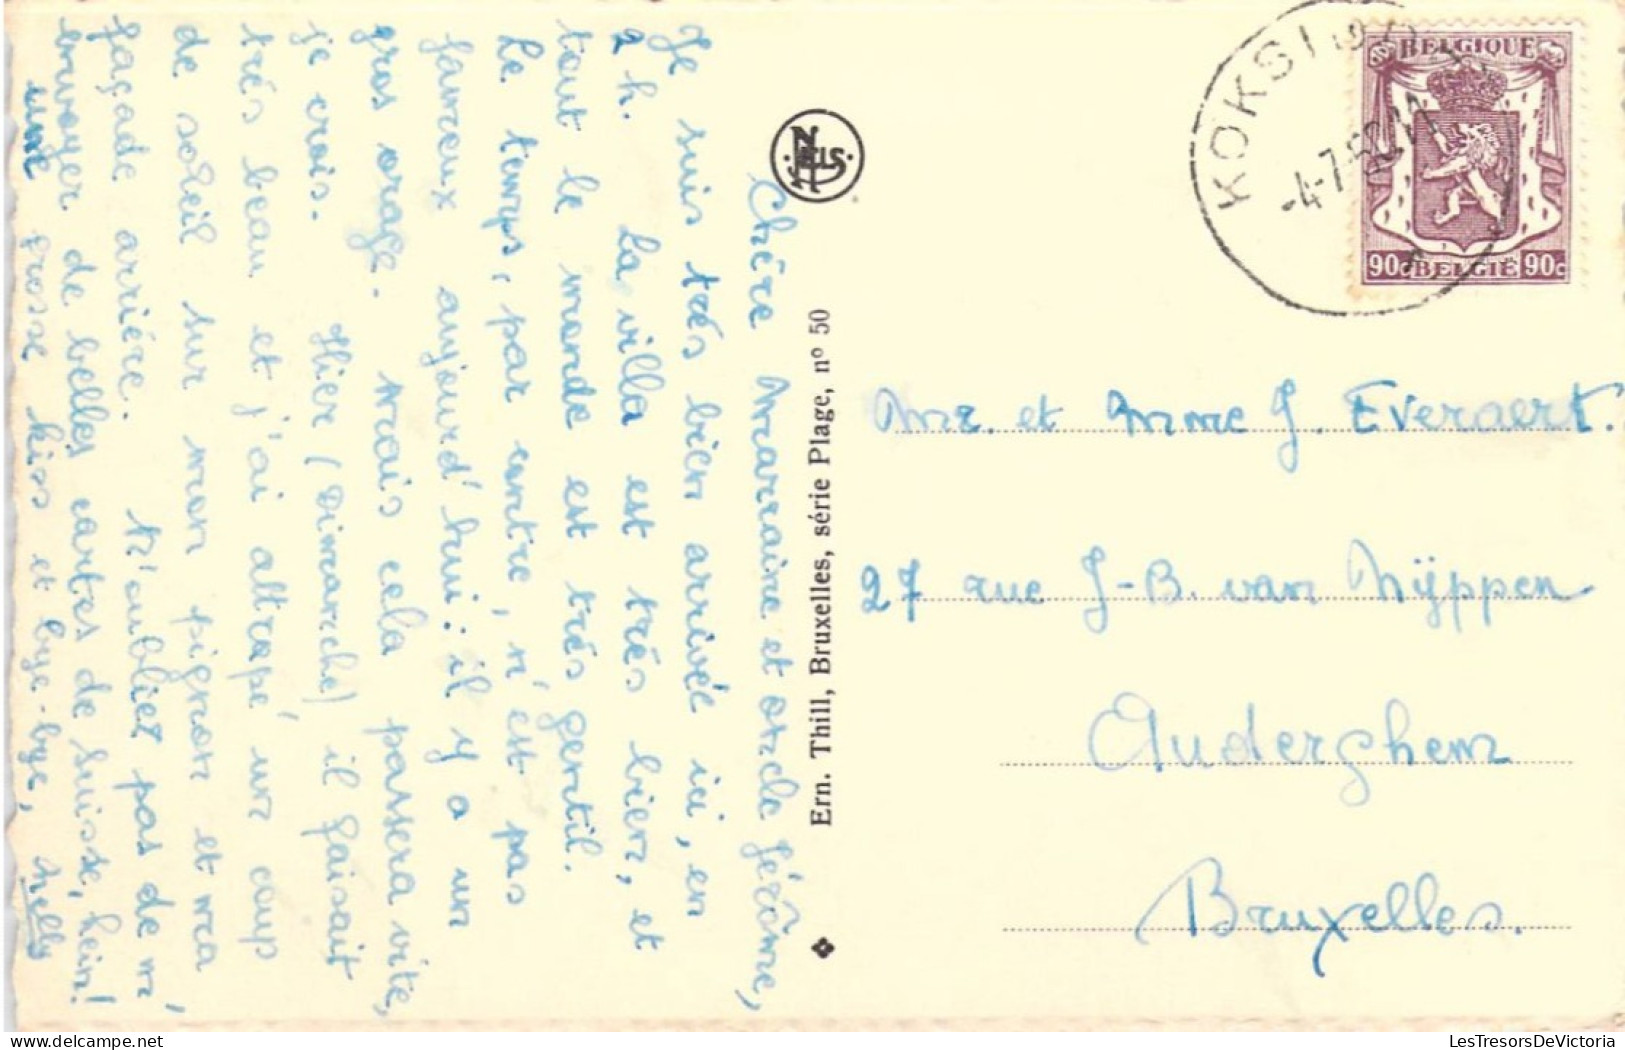 Chère Marraine et oncle Jérôme,
Je suis très bien arrivée ici, en
2 h. La villa est très bien, et
tout le monde est très gentil.
Le temps, par contre, n'est pas
fameux aujourd'hui : il y a un
gros orage. Mais cela passera vite,
je crois. Hier (Dimanche) il faisait
très beau et j'ai attrapé un coup
de soleil sur mon pignon et ma
façade arrière. N'oubliez pas de m'
envoyer de belles cartes de Suisse, hein!
une grosse kiss et bye-bye, Nelly
NELS
Ern. Thill, Bruxelles, série Plage, nº 50
KOKSIJDE
-4-7-
BELGIQUE
90c BELGIË 90c
Mr. et Mme J. Everaert.
27 rue J-B. van Nÿppen
Auderghem
Bruxelles.
LesTresorsDeVictoria